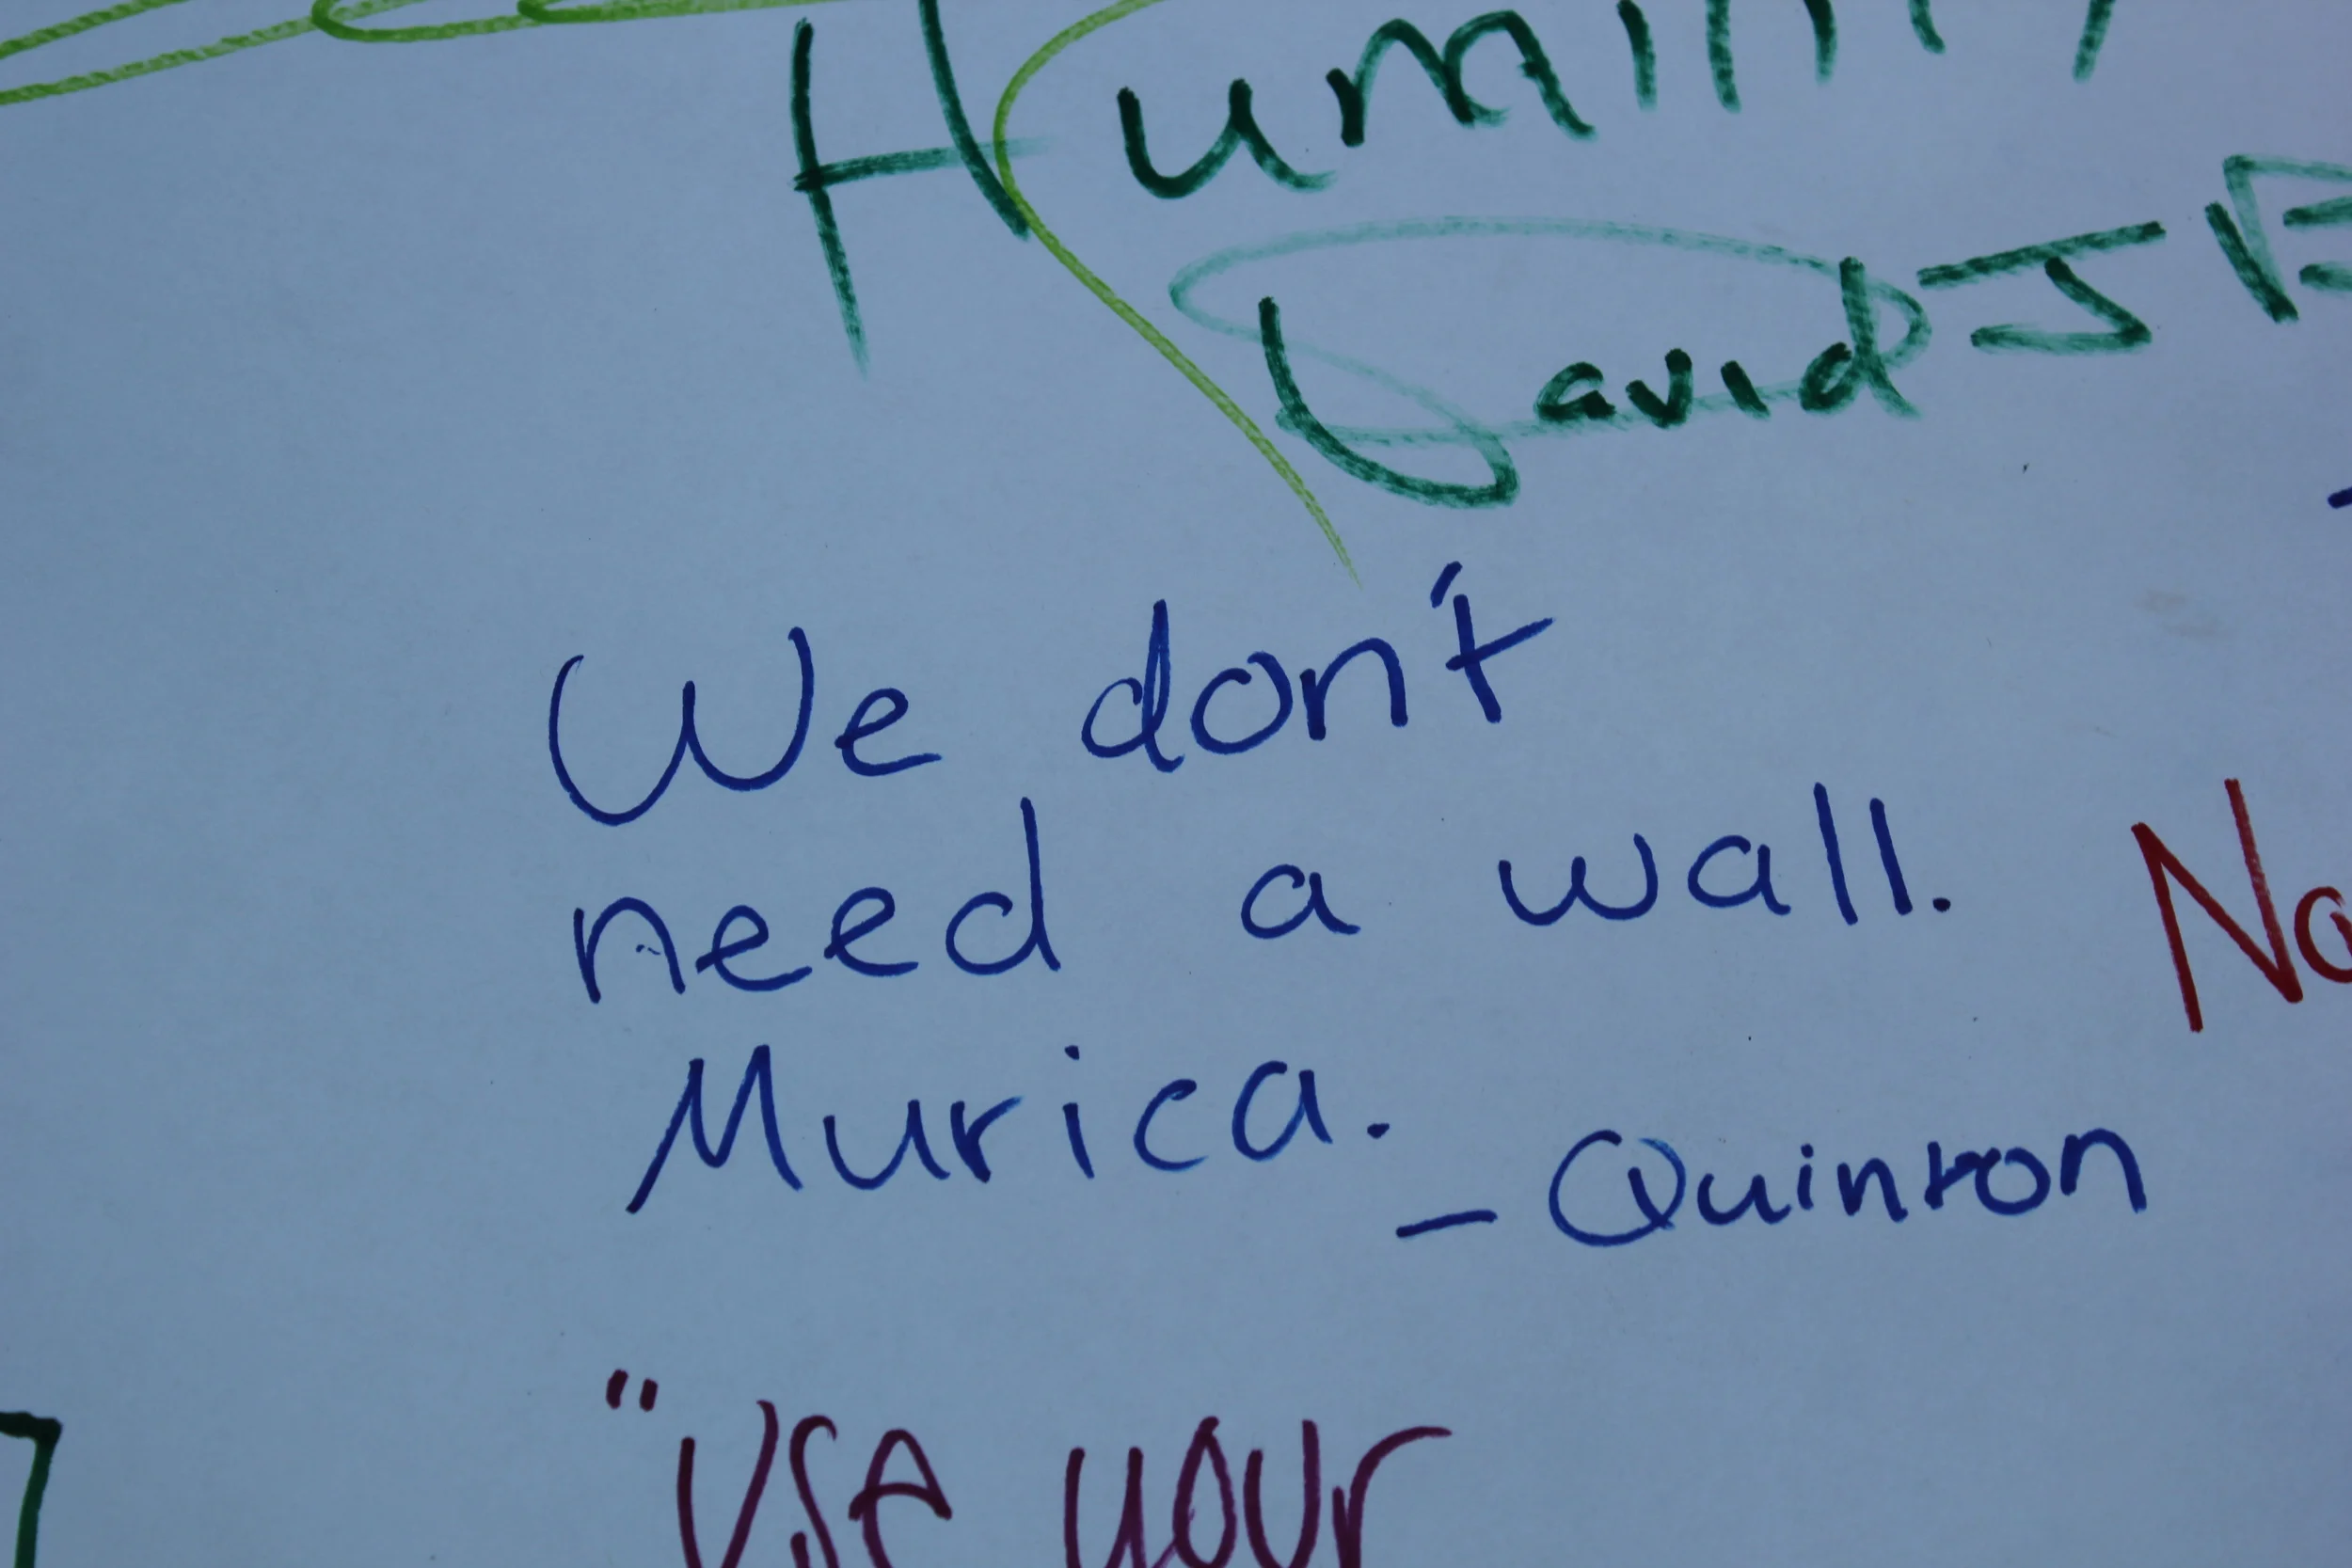 Humility
David J
We don't
need a wall.
Murica.
- Quinton
"Use your